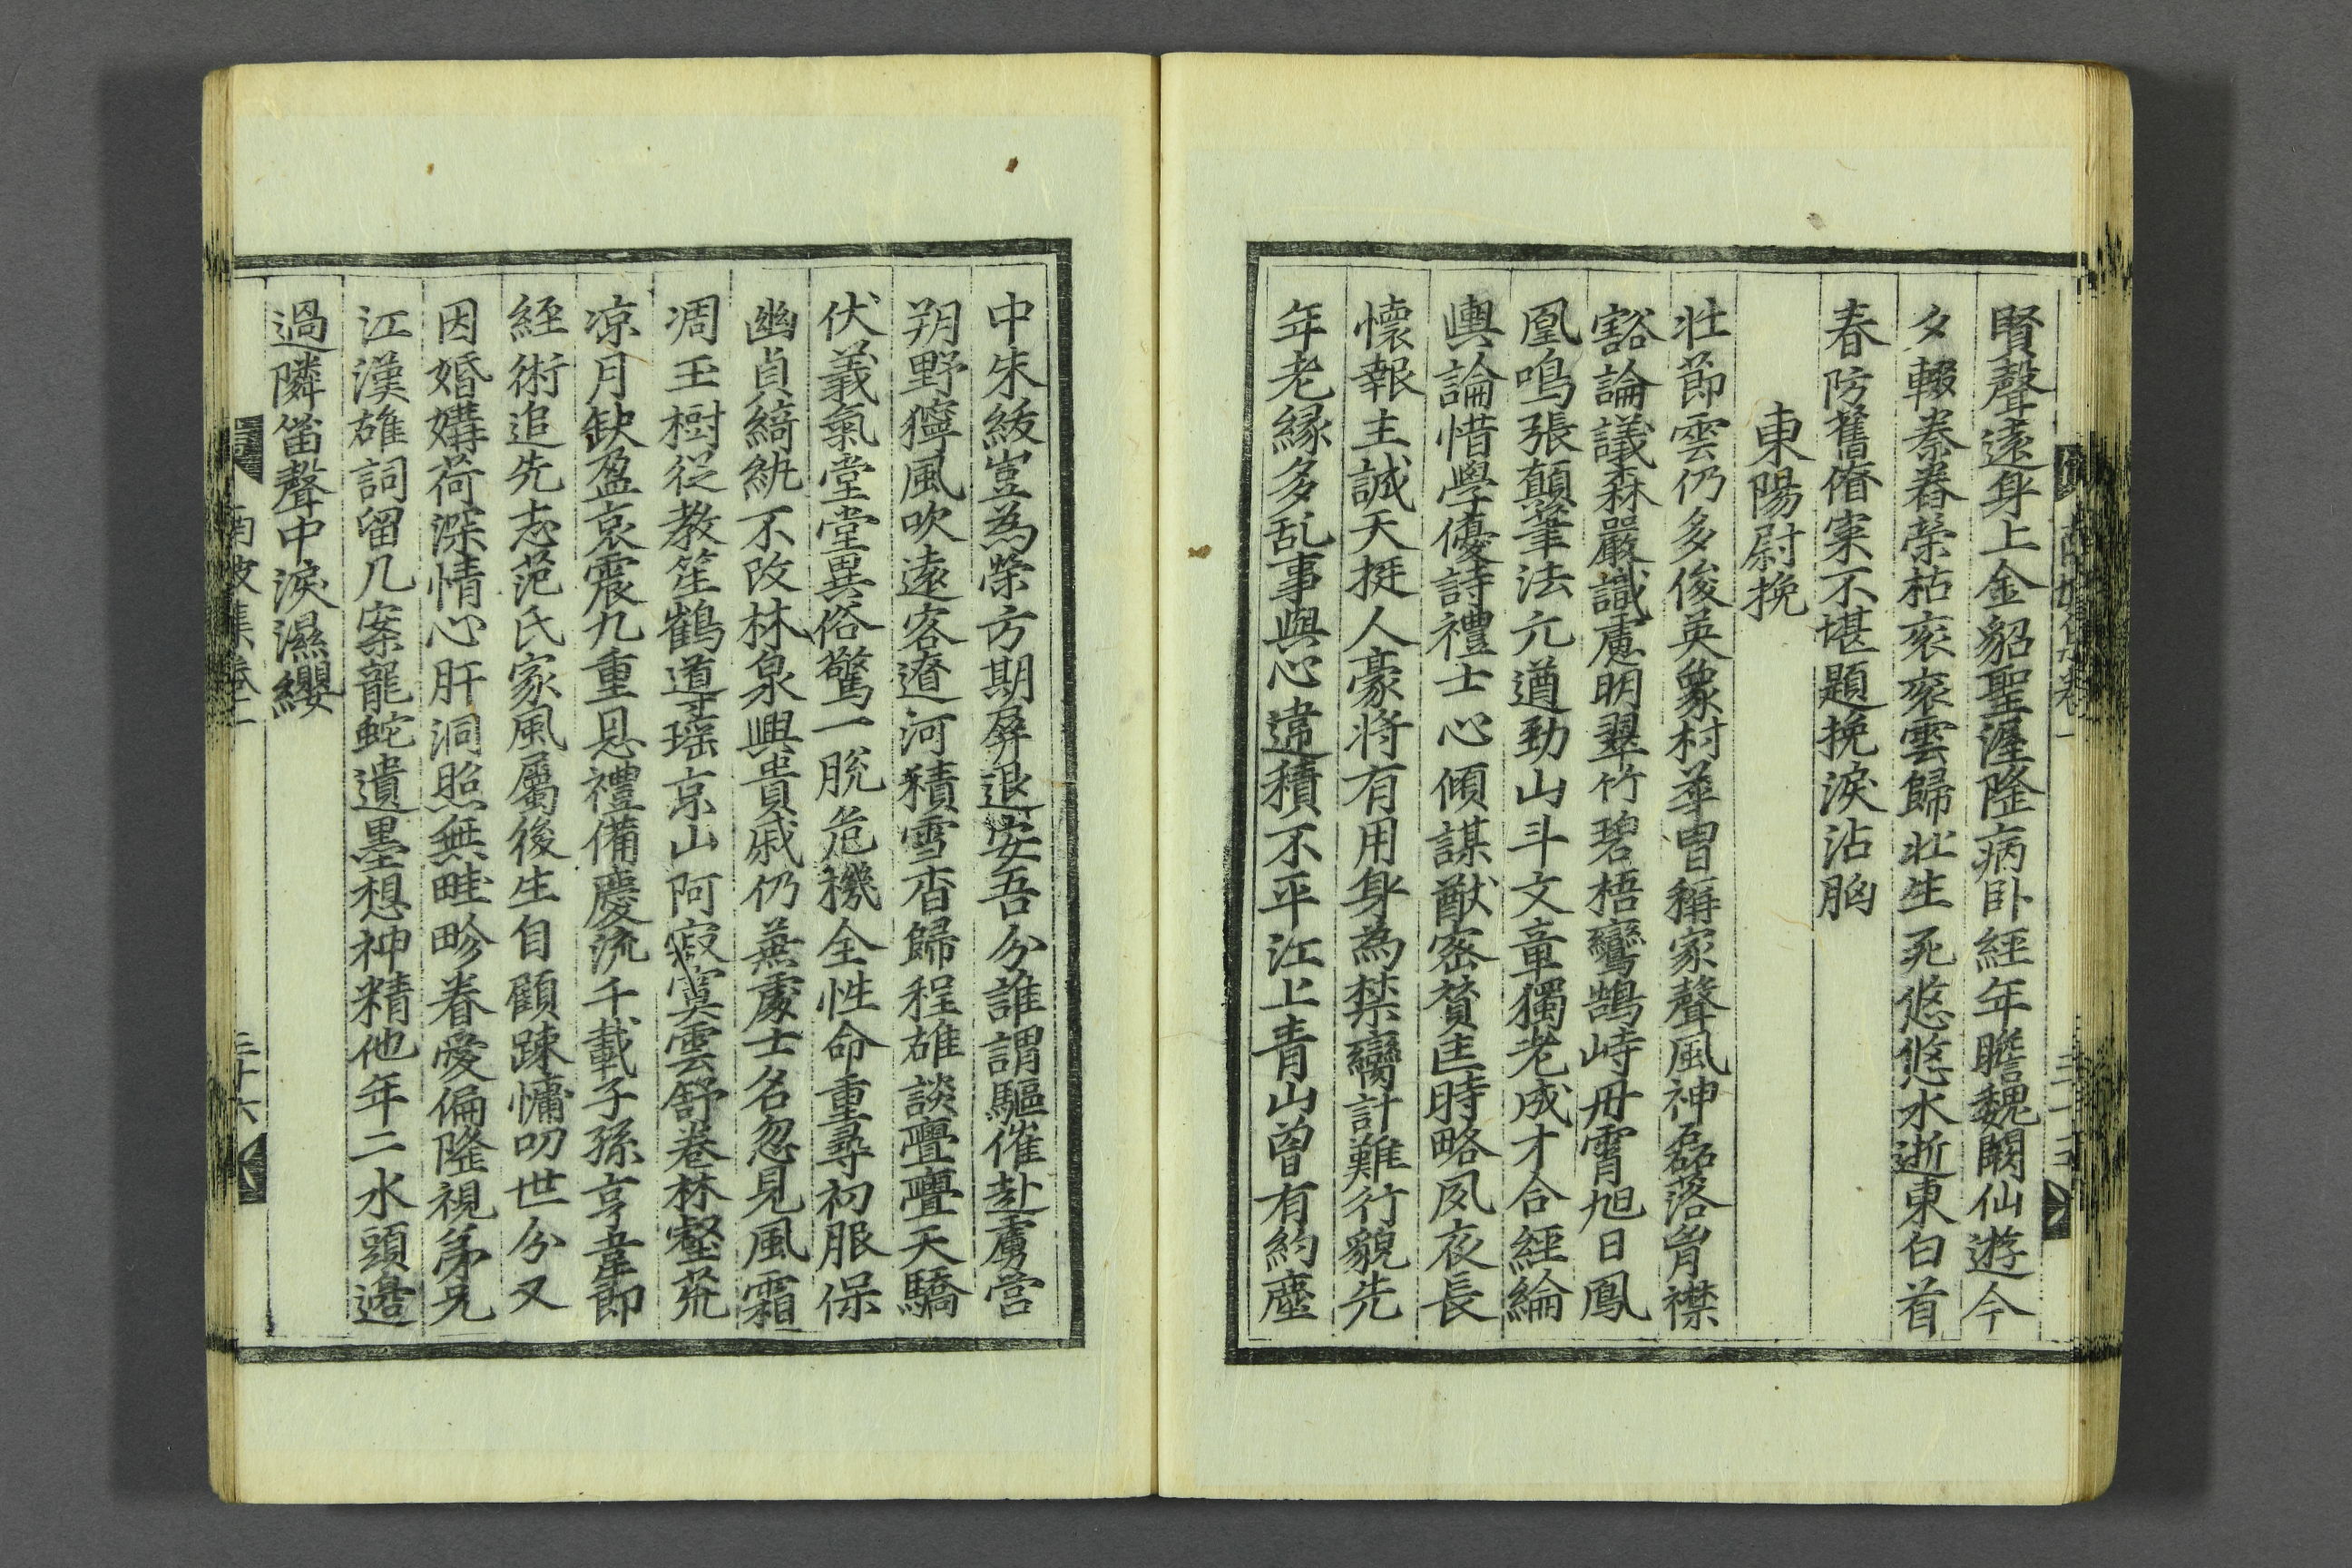 賢聲遠身上金貂聖渥隆病卧經年瞻魏闕仙遊今
夕輟秦舂榮枯衮衮雲歸壯生死悠悠水逝東白首
春防舊僚寀不堪題挽淚沾胸
東陽尉挽
壯節雲仍多俊英象村華冑稱家聲風神磊落胷襟
豁論議森嚴識慮明翠竹碧梧鸞鵠峙丹霄旭日鳳
凰鳴張顛筆法元遒勁山斗文章獨老成才合經綸
輿論惜學優詩禮士心傾謀猷密贊匡時略夙夜長
懷報主誠天挺人豪將有用身為禁臠計難行貌先
年老緣多乱事與心違積不平江上青山曾有約塵
中朱紱豈為榮方期屛退安吾分誰謂驅催赴虜營
朔野獰風吹遠客遼河積雪杳歸程雄談亹亹天驕
伏義氣堂堂異俗驚一脫危機全性命重尋初服保
幽貞綺紈不改林泉興貴戚仍蕪處士名忽見風霜
凋玉樹從敎笙鶴導瑤京山阿寂寞雲舒卷林壑荒
凉月缺盈哀震九重恩禮備慶流千載子孫亨韋郞
經術追先志范氏家風屬後生自顧踈慵叨世分又
因婚媾荷深情心肝洞照無畦畛眷愛偏隆視弟兄
江漢雄詞留几案龍蛇遺墨想神精他年二水頭邊
過隣笛聲中淚濕纓
南坡集卷二
三十六